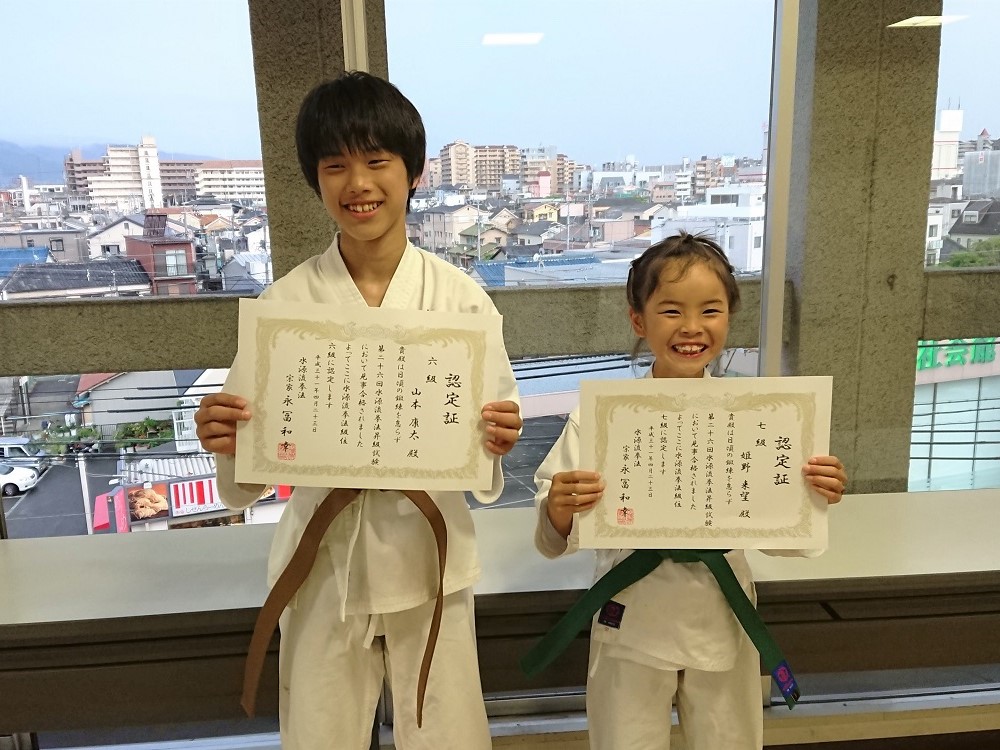 認定証
六級 山本康太殿
貴殿は日頃の鍛練を怠らず
第二十六回水源流拳法昇級試験
において見事合格されました
よってここに水源流拳法級位
六級に認定します
平成三十一年四月二十三日
水源流拳法
宗家 永冨和幸
認定証
七級 姫野来望殿
貴殿は日頃の鍛練を怠らず
第二十六回水源流拳法昇級試験
において見事合格されました
よってここに水源流拳法級位
七級に認定します
水源流拳法
宗家 永冨和幸
社会館